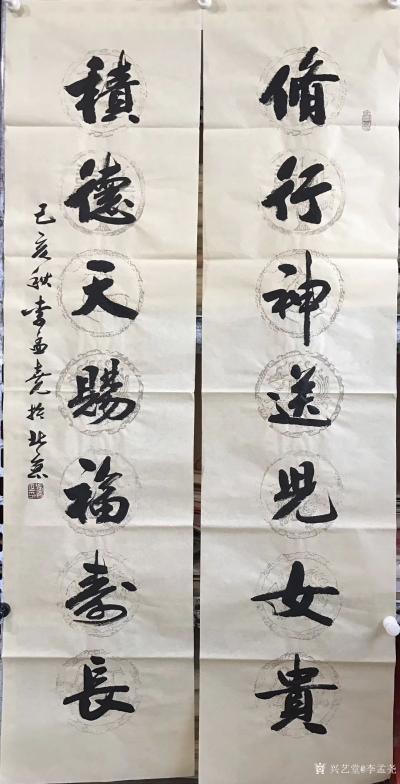 脩行神送児女貴
積德天賜福壽長
己亥秋李孟尭於北京
兴艺堂@李孟尧